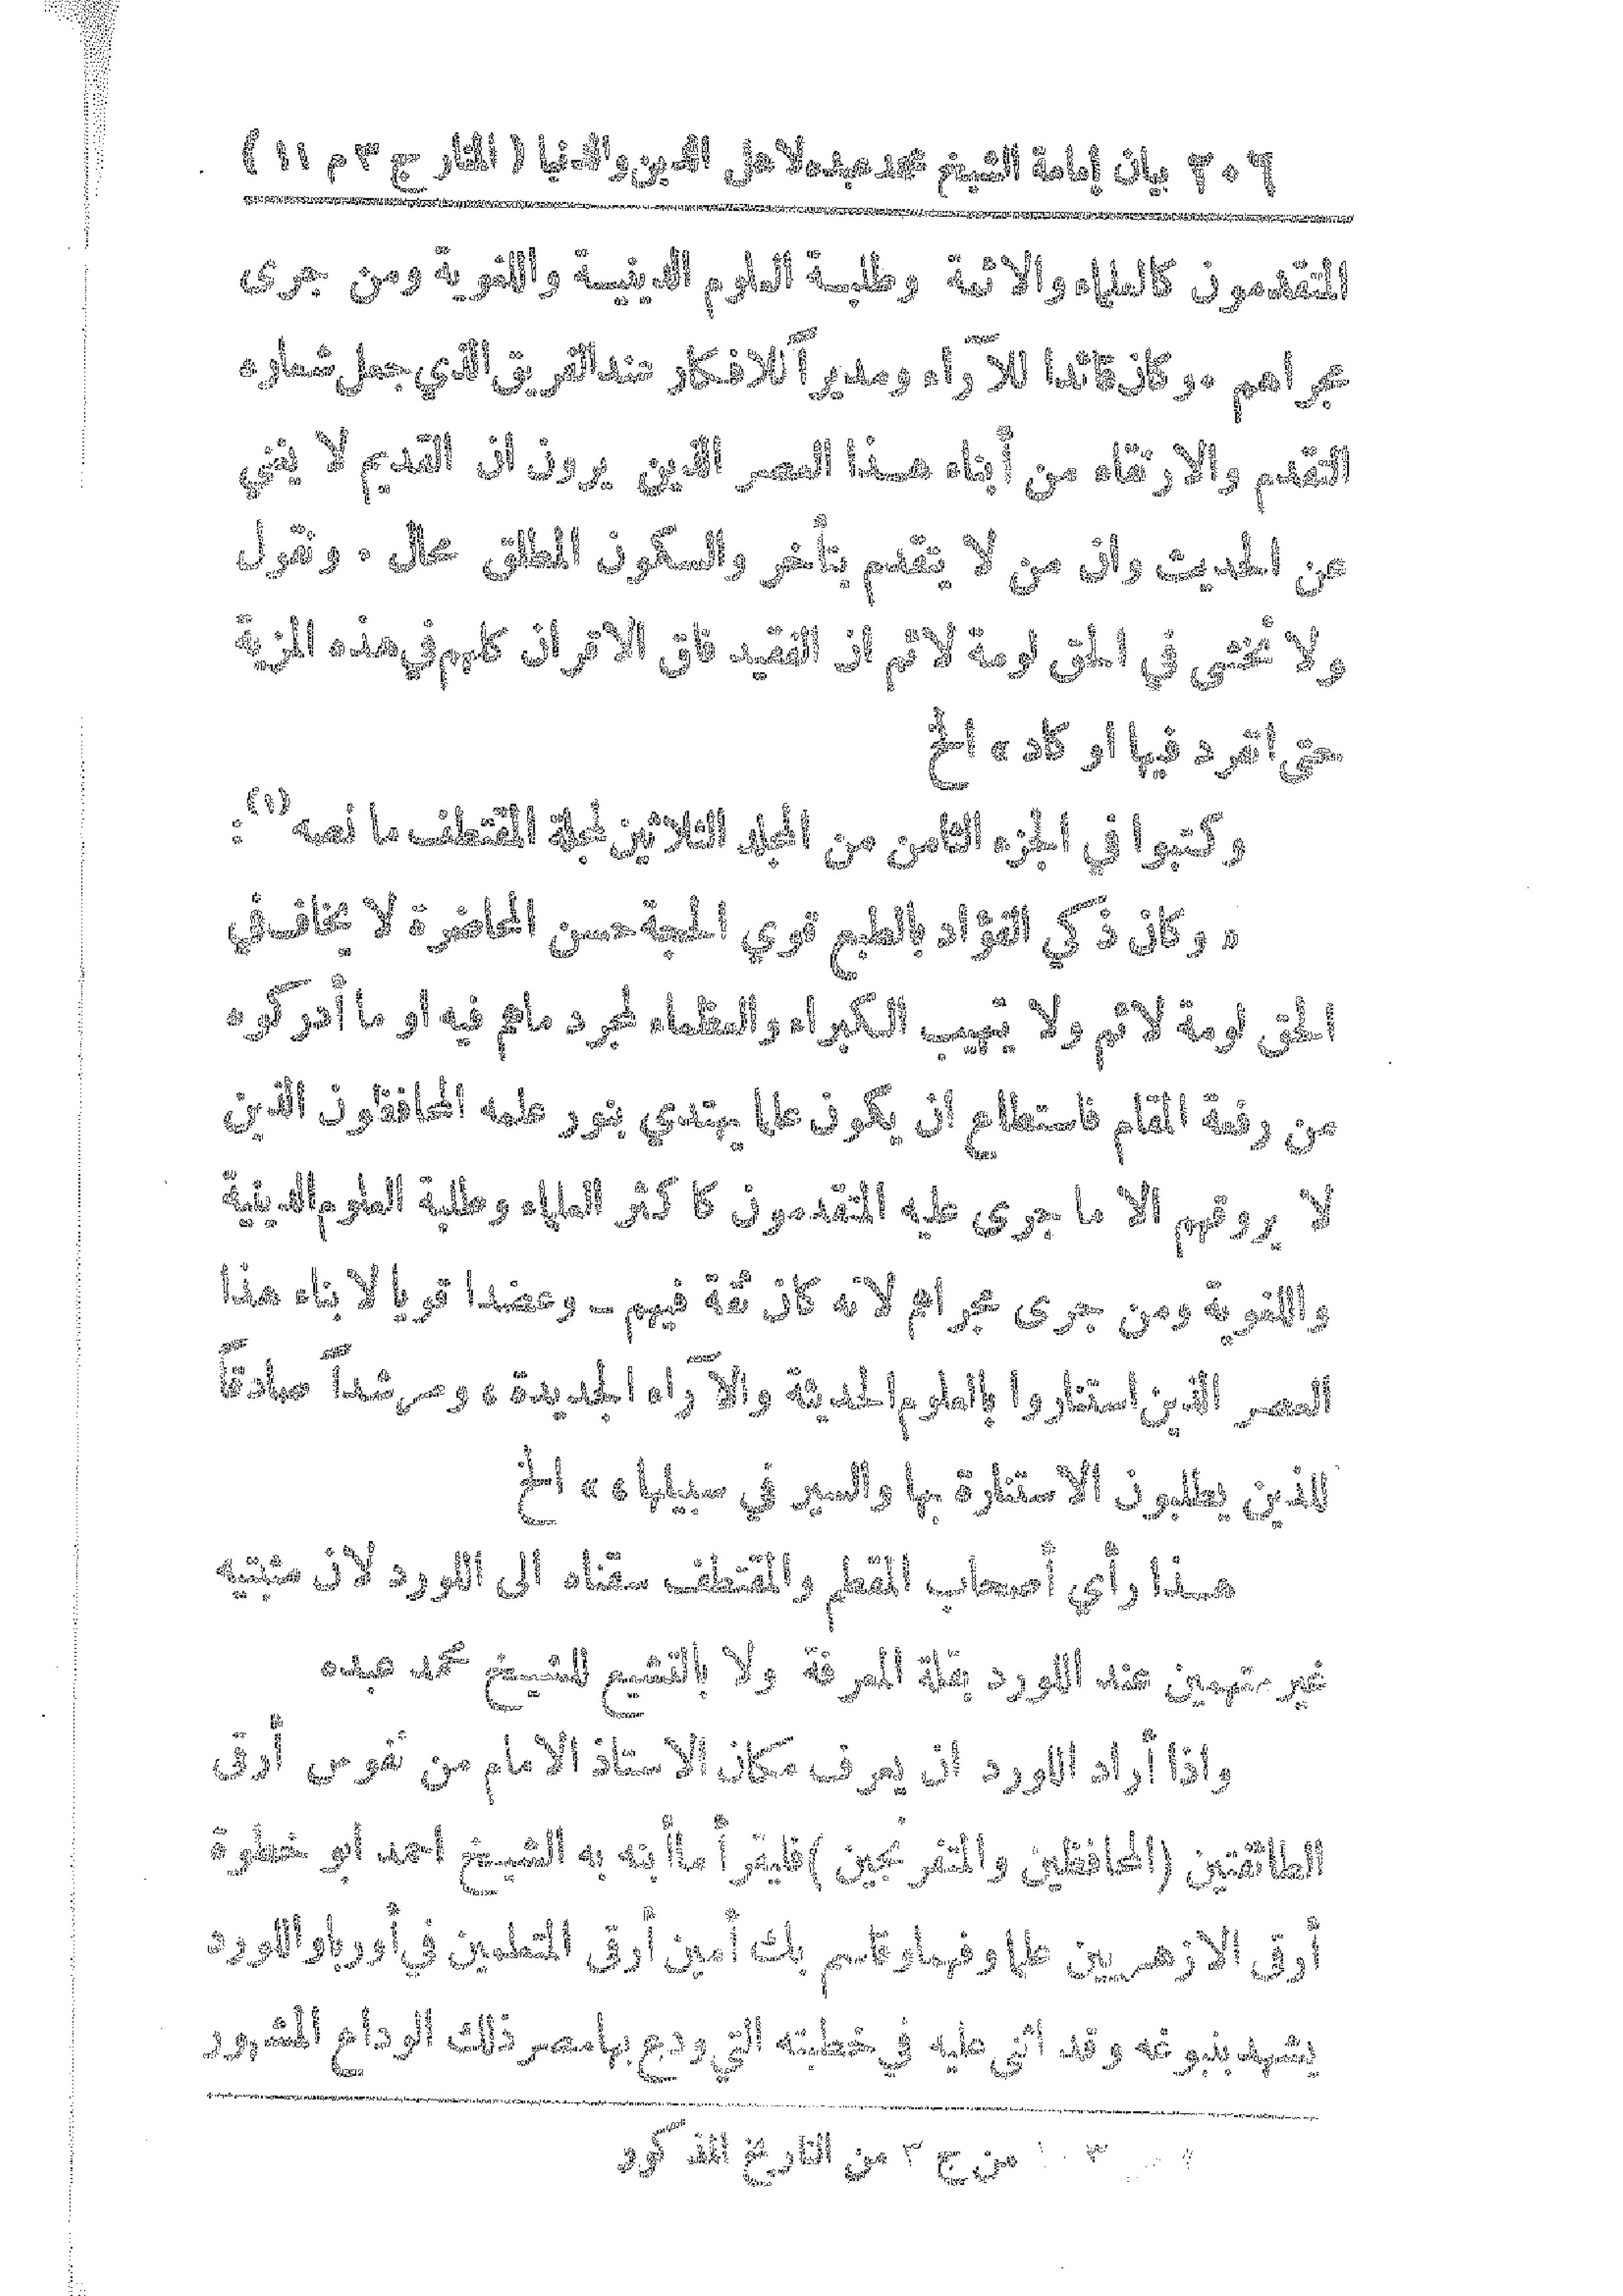 ٢٠٦ بيان إمامة الشيخ محمد عبده لاهل الدين والدنيا ( المنار ج ٣ م ١١ )
المتقدمون كالعلماء والائمة وطلبة العلوم الدينية واللغوية ومن جرى
مجراهم . وكان قائدا للآراء ومديراً للافكار عند الفريق الذي جعل شعاره
التقدم والارتقاء من أبناء هذا العصر الذين يرون ان القديم لا يغني
عن الحديث وان من لا يتقدم يتأخر والسكون المطلق محال . ونقول
ولا نخشى في الحق لومة لائم ان الفقيد فاق الاقران كلهم في هذه المزية
حتى انفرد فيها او كاد » الخ
وكتبوا في الجزء الثامن من المجلد الثلاثين لمجلة المقتطف ما نصه (١) :
« وكان ذكي الفؤاد بالطبع قوي الحجة حسن المحاضرة لا يخاف في
الحق لومة لائم ولا يتهيب الكبراء والعظماء لمجرد ماهم فيه او ما أدركوه
من رفعة المقام فاستطاع ان يكون علما يهتدي بنور علمه المحافظون الذين
لا يروقهم الا ما جرى عليه المتقدمون كاكثر العلماء وطلبة العلوم الدينية
واللغوية ومن جرى مجراهم لانه كان ثقة فيهم – وعضدا قويا لابناء هذا
العصر الذين استناروا بالعلوم الحديثة والآراء الجديدة ، ومرشداً صادقاً
للذين يطلبون الاستنارة بها والسير في سبيلها ، » الخ
هذا رأي أصحاب المقطم والمقتطف سقناه الى اللورد لان مثبتيه
غير متهمين عند اللورد بقلة المعرفة ولا بالتشيع للشيخ محمد عبده
واذا أراد اللورد ان يعرف مكان الاستاذ الامام من نفوس أرقى
الطائفتين ( المحافظين والمتفرنجين ) فليقرأ ماأبنه به الشيخ احمد ابو خطوة
أرقى الازهريين علما وفهما وقاسم بك أمين أرقى المتعلمين في أوربا واللورد
يشهد بنبوغه وقد اثنى عليه في خطبته التي ودع بها مصر ذلك الوداع المشهور
من ج ٣ من التاريخ المذكور